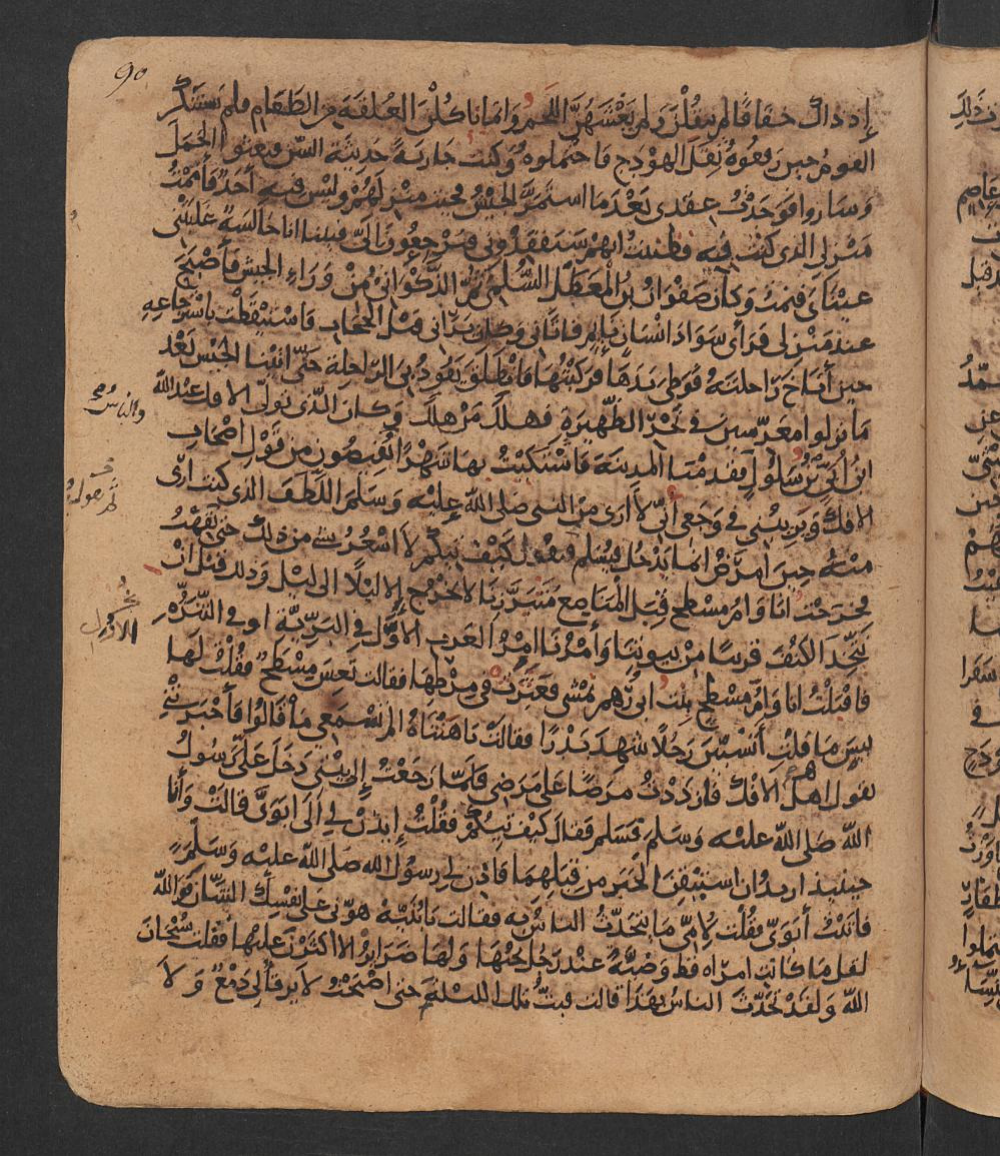 90
إذ ذاك خفافا لم يثقلن ولم يغشهن اللحم وإنما نأكل العلقة من الطعام ولم يستنكر
القوم حين رفعوه ثقل الهودج فاحتملوه وكنت جارية حديثة السن فبعثوا الجمل
وساروا فوجدت عقدي بعد ما استمر الجيش فجيت منزلهم وليس فيه أحد فأممت
منزلي الذي كنت فيه فظننت انهم سيفقدوني فيرجعون الي فبينا انا جالسة غلبتني
عيناي فنمت وكان صفوان بن المعطل السلمي ثم الذكواني من وراء الجيش فأصبح
عند منزلي فرأى سواد انسان نايم فاتاني وكان يراني قبل الحجاب فاستيقظت باسترجاعه
حين أناخ راحلته فوطى يدها فركبتها فانطلق يقود بي الراحلة حتى اتينا الجيش بعد
ما نزلوا معرسين في نحر الظهيرة فهلك من هلك وكان الذي تولى الافك عبد الله
والناس
ابن ابي بن سلول فقدمنا المدينة فاستكيت بها شهرا يفيضون من قول اصحاب
الافك ويريبني في وجعي أني لا أرى من النبي صلى الله عليه وسلم اللطف الذي كنت ارى
منه حين امرض انما يدخل فيسلم فيقول كيف تيكم لا اشعر بشي من ذلك حتى نقهت
فخرجت انا وام مسطح قبل المناصع متبرزنا لا نخرج إلا ليلا الى ليل وذلك قبل ان
نتخذ الكنف قريبا من بيوتنا وأمرنا امر العرب الأول في البرية او في التنزه
الاول
فاقبلت انا وام مسطح بنت ابي رهم نمشي فعثرت في مرطها فقالت تعس مسطح فقلت لها
بيس ما قلت أتسبين رجلا شهد بدرا فقالت يا هنتاه الم تسمعي ما قالوا فأخبرتني
بقول اهل الافك فازددت مرضا على مرضي فلما رجعت إلى بيتي دخل علي رسول
الله صلى الله عليه وسلم فسلم فقال كيف تيكم فقلت إيذن لي الى ابوي قالت وأنا
حينيذ اريد ان استيقن الخبر من قبلهما فاذن لي رسول الله صلى الله عليه وسلم
فاتيت أبوي فقلت لامي ما يتحدث الناس به فقالت يا بنية هوني على نفسك الشان فوالله
لقل ما كانت امراه قط وضية عند رجل يحبها ولها ضراير الا اكثرن عليها فقلت سبحان
الله ولقد تحدث الناس بهذا قالت فبت تلك الليلة حتى اصبحت لا يرقأ لي دمع ولا